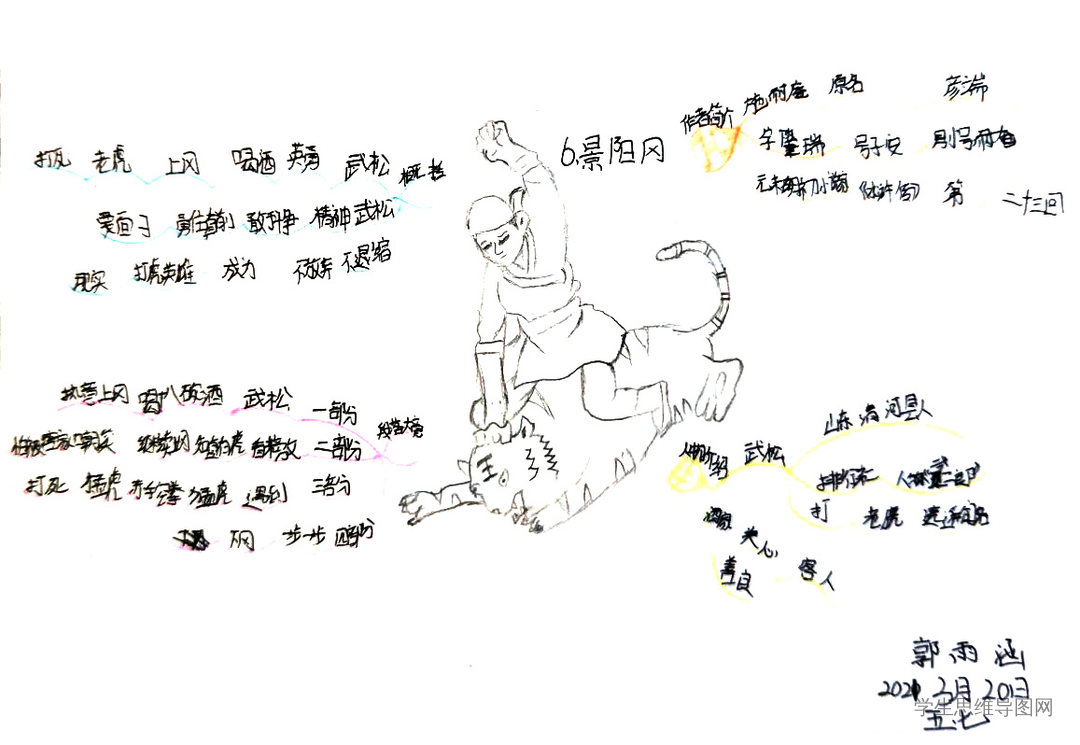 6.景阳冈
作者简介 施耐庵 原名 彦端
字肇瑞 号子安 别号耐庵
元末明初小说 《水浒传》 第 二十三回
打死 老虎 上冈 喝酒 英勇 武松 概括
爱面子 勇往直前 敢斗争 精神 武松
现实 打虎英雄 成为 不放弃 不退缩
执意上冈 喝八碗酒 武松 一部分
继续 有 二部分 段落大意
打死 猛虎 赤手空拳 猛虎 遇到 三部分
下冈 步一步 四部分
人物介绍 武松 山东 清河县人
排行老二 人称
打 老虎
酒家 关心 客人
善良
郭雨涵
2021 3月20日
五.七
学生思维导图网